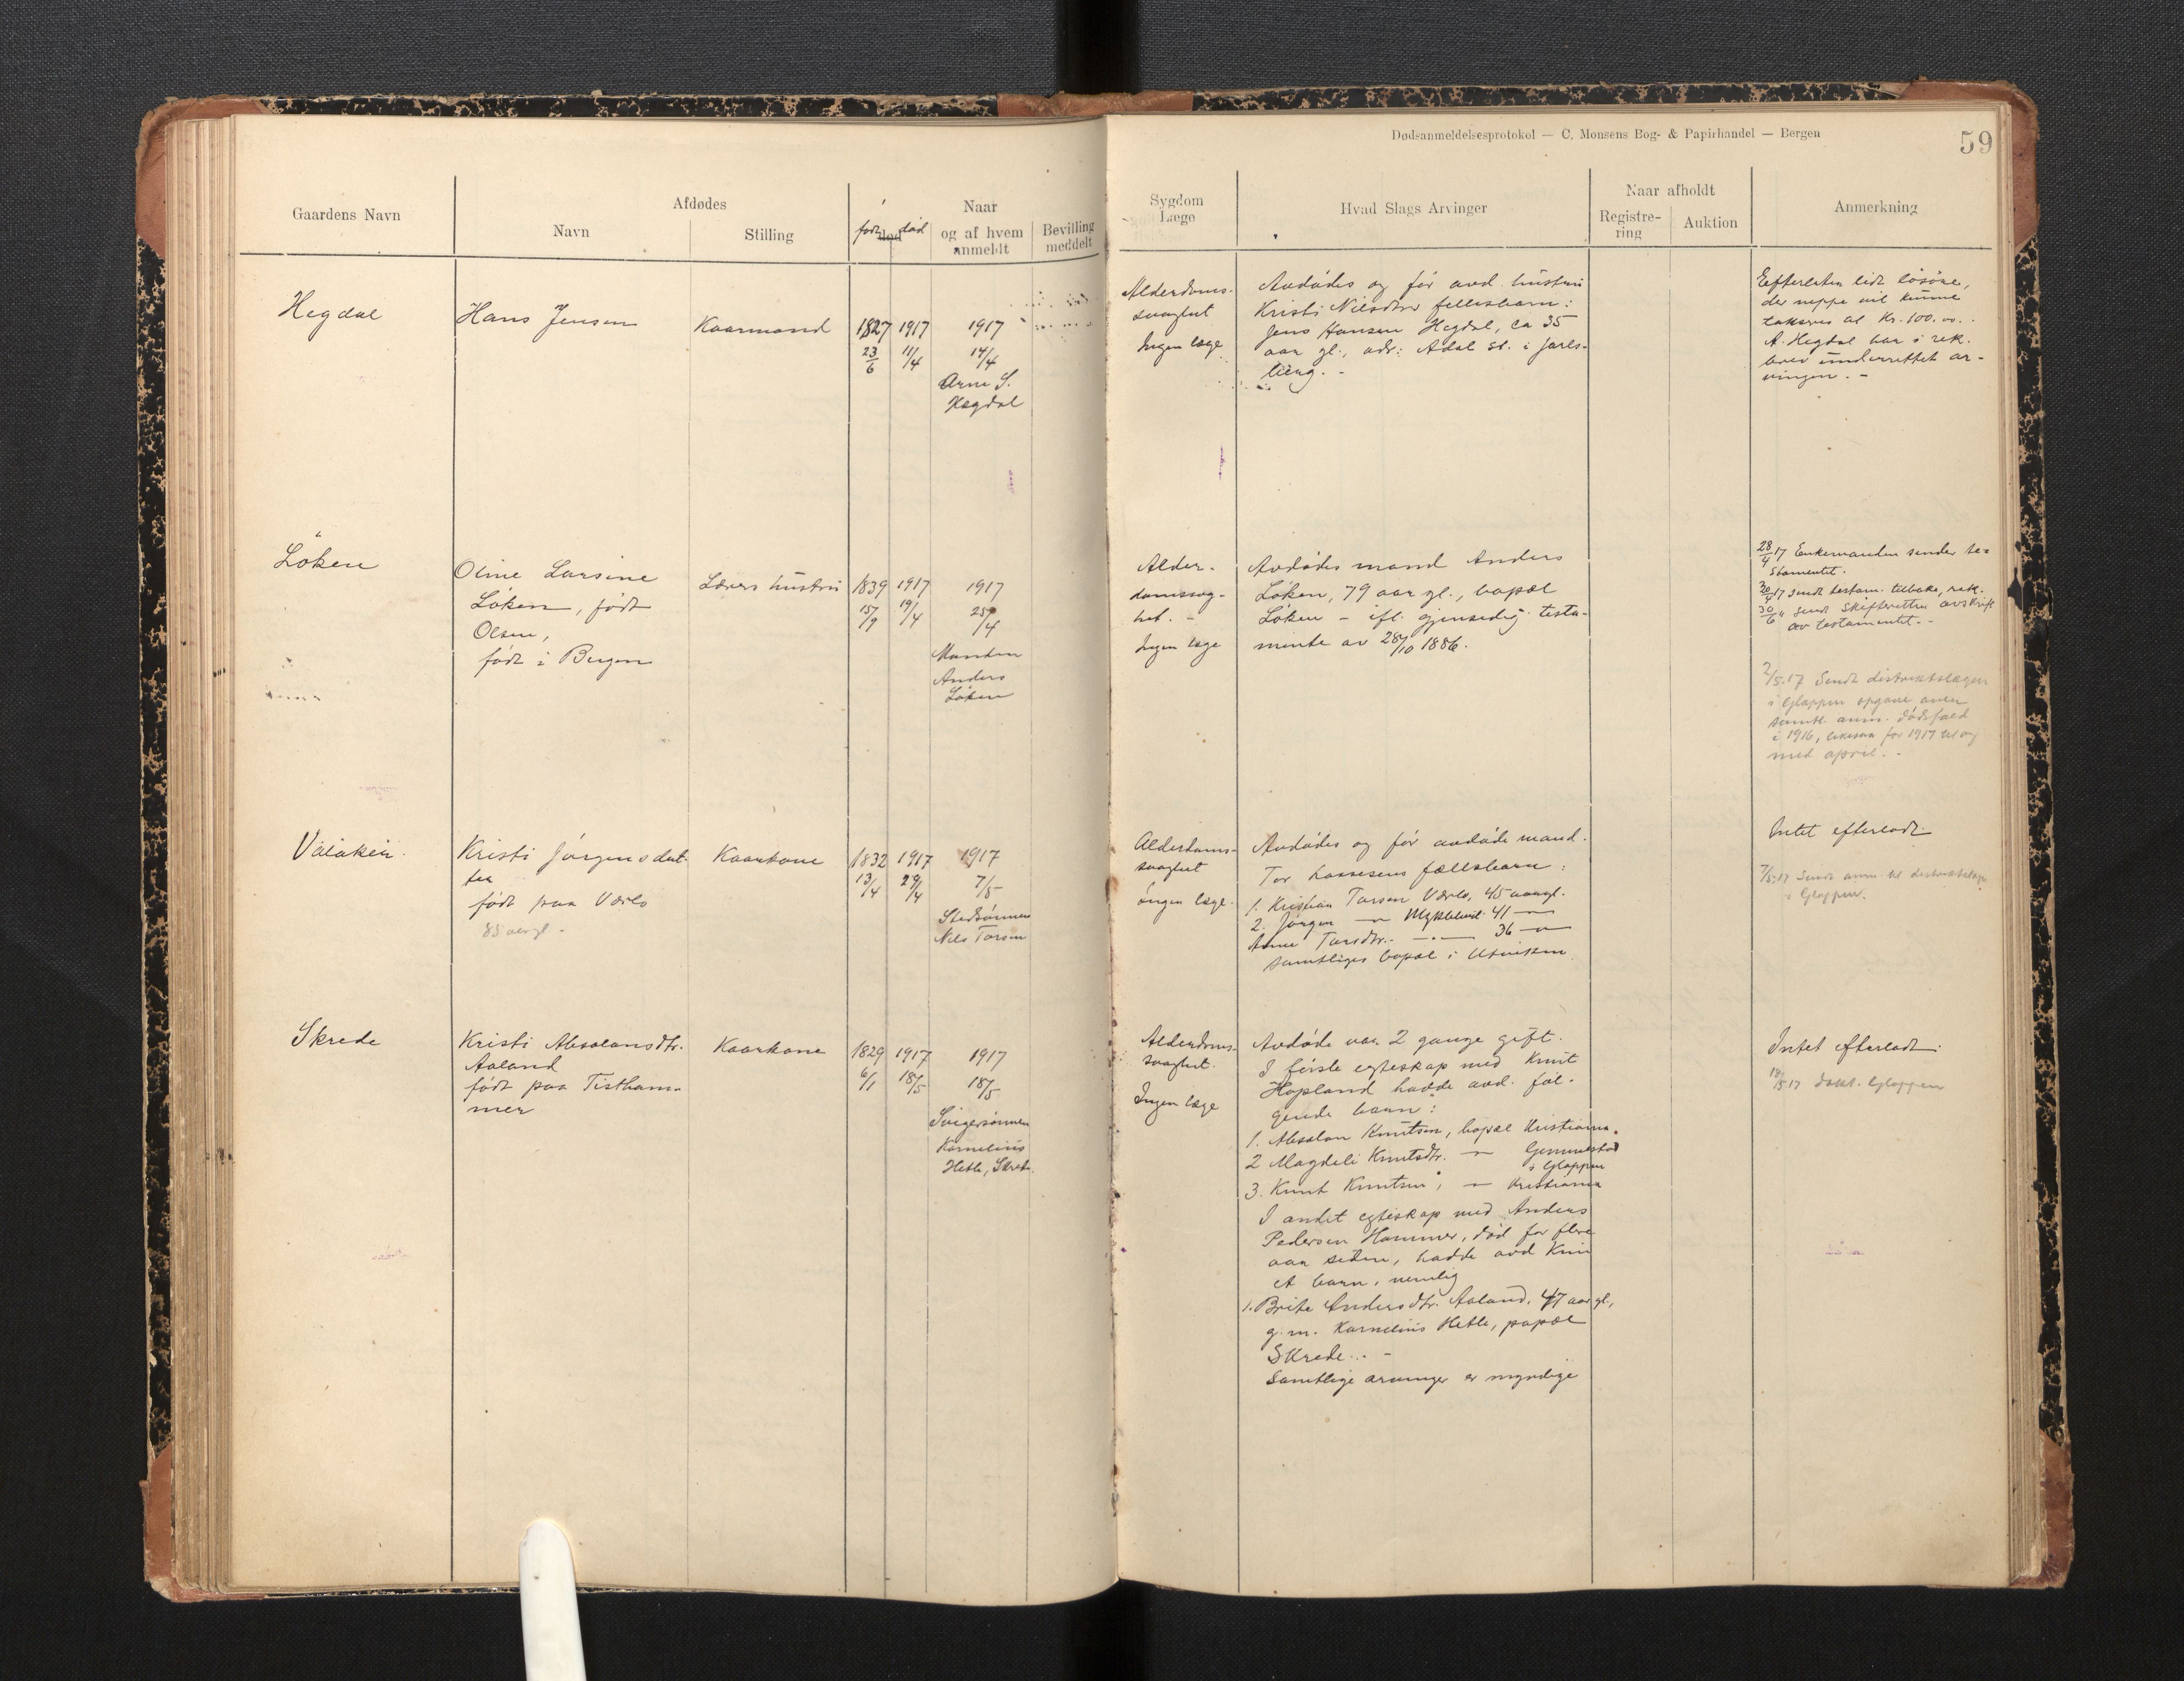 Dødsanmeldelsesprotokol — C. Monsens Bog- & Papirhandel — Bergen
59
Gaardens Navn
Afdødes
Navn
Stilling
født død
død
Naar
og af hvem
anmeldt
Bevilling
meddelt
Sygdom
Læge
Hvad Slags Arvinger
Naar afholdt
Registre-
ring
Auktion
Anmerkning
Hegdal
Hans Jensen
Kaarmand
1827 1917 1917
23/6 11/4 14/4
Arne S.
Hegdal
Alderdoms-
svaghet
Ingen læge
Avdødes og før avd. hustru
Kristi Nilsdtrs fellesbarn:
Jens Hansen Hegdal, ca 35
aar gl., adr: Adal st. i Jarls-
berg. -
Efterlatn lidt løsøre,
der neppe vil kunne
takseres at Kr. 100.00.
A. Hegdal har i rek.
brev underrettet ar-
vingen. -
Løken
Oline Larsine
Løken, født
Olsen,
født i Bergen
Lærers hustru
1839 1917 1917
15/9 19/4 25/4
Manden
Anders
Løken
Alder-
domssvag-
het. -
Ingen læge
Avdødes mand Anders
Løken, 79 aar gl., bopæl
Løken - ifl. gjensidig testa-
mente av 28/10 1886.
28/4 17 Enkemanden sender te-
stamentet.
30/4 17 Sendt testam. tilbake, rek.
30/6 " Sendt Skifteretten avskrift
av testamentet. -
2/5.17 Sendt distriktslægen
i Gloppen opgave over
samtl. anm. dødsfald
i 1916, likesaa for 1917 til og
med april. -
Vaiaken
Kristi Jørgensdat-
ter
født paa Værlo
85 aar gl. -
Kaarkone
1832 1917 1917
13/4 29/4 7/5
Stedsønnen
Nils Torsen
Alderdoms-
svaghet
Ingen læge
Avdødes og før avdøde mand
Tor Lassesens fællsbarn:
1. Kristian Torsen Værlo, 45 aar gl.
2. Jørgen — Myklebust 41 —
Anne Torsdtr. — 36 —
samtliges bopæl i Utviken
Intet efterladt
7/5.17 Sendt anm. til distriktslæge
i Gloppen.
Skrede
Kristi Absalonsdtr.
Aaland
født paa Tistham-
mer
Kaarkone
1829 1917 1917
6/1 18/5 18/5
Svigersønnen
Kornelius
Hetle, Skrede.
Alderdoms-
svaghet.
Ingen læge
Avdøde var 2 gange gift.
I første egteskap med Knut
Hopland hadde avd. føl-
gende barn:
1. Absalon Knutsen, bopæl Kristiania.
2 Magdeli Knutsdtr. — Gimmestad
i Gloppen
3. Knut Knutsen, — Kristiania
I andet egteskap med Anders
Pedersen Hammer, død for flere
aar siden, hadde avd kun
et barn, nemlig
1. Brite Andersdtr. Aaland, 47 aar gl.,
g. m. Kornelius Hetle, bopæl
Skrede. -
Samtlige arvinger er myndige
Intet efterladt.
18/5 17 Distl. Gloppen